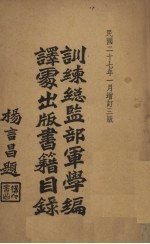 民國二十七年一月增訂三版
訓練總監部軍學編
譯處出版書籍目錄
楊言昌題